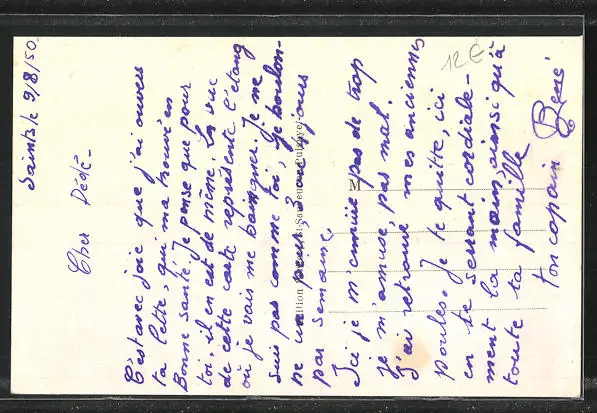 Saints le 9/8/50.
Cher Dédé.
C'est avec joie que j'ai ouvers
ta lettre, qui ma trouvé en
Bonne santé. Je pense que pour
toi, il en est de même. La vue
de cette carte représente l'étang
où je vais me baigner. Je ne
suis pas comme toi, je
ne un peu, 3 jours
par semaine.
Ici je m'ennuie pas de trop
je m'amuse, pas mal.
J'ai retrouvé mes anciennes
poules. Je te quitte, ici
en te serrant cordiale-
ment la main, ainsi qu'à
toute ta famille
ton copain René
12 €
M